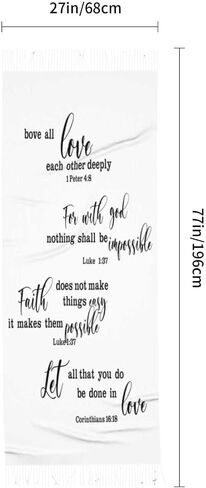 27in/68cm
bove all love
each other deeply
1 Peter 4:8
For with god
nothing shall be impossible
Luke 1:37
Faith does not make
things easy
it makes them possible
Luke1:37
Let all that you do
be done in love
Corinthians 16:18
77in/196cm